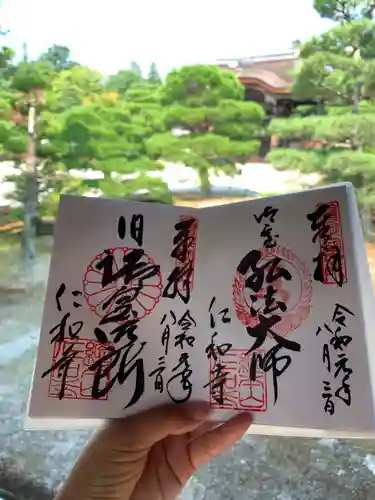 奉拝
令和元年
八月三日
御室
弘法大師
仁和寺
奉拝
令和元年
八月三日
旧
御室御所
仁和寺